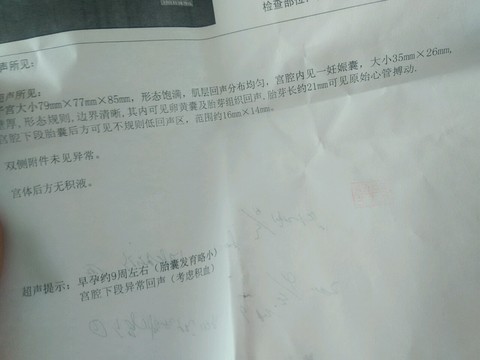 检查部位:
声所见:
超声所见:
子宫大小79mm×77mm×85mm, 形态饱满, 肌层回声分布均匀, 宫腔内见一妊娠囊, 大小35mm×26mm,
壁厚, 形态规则, 边界清晰, 其内可见卵黄囊及胎芽组织回声, 胎芽长约21mm可见原始心管搏动.
宫腔下段胎囊后方可见不规则低回声区, 范围约16mm×14mm.
双侧附件未见异常。
宫体后方无积液。
超声提示: 早孕约9周左右 (胎囊发育略小)
宫腔下段异常回声 (考虑积血)